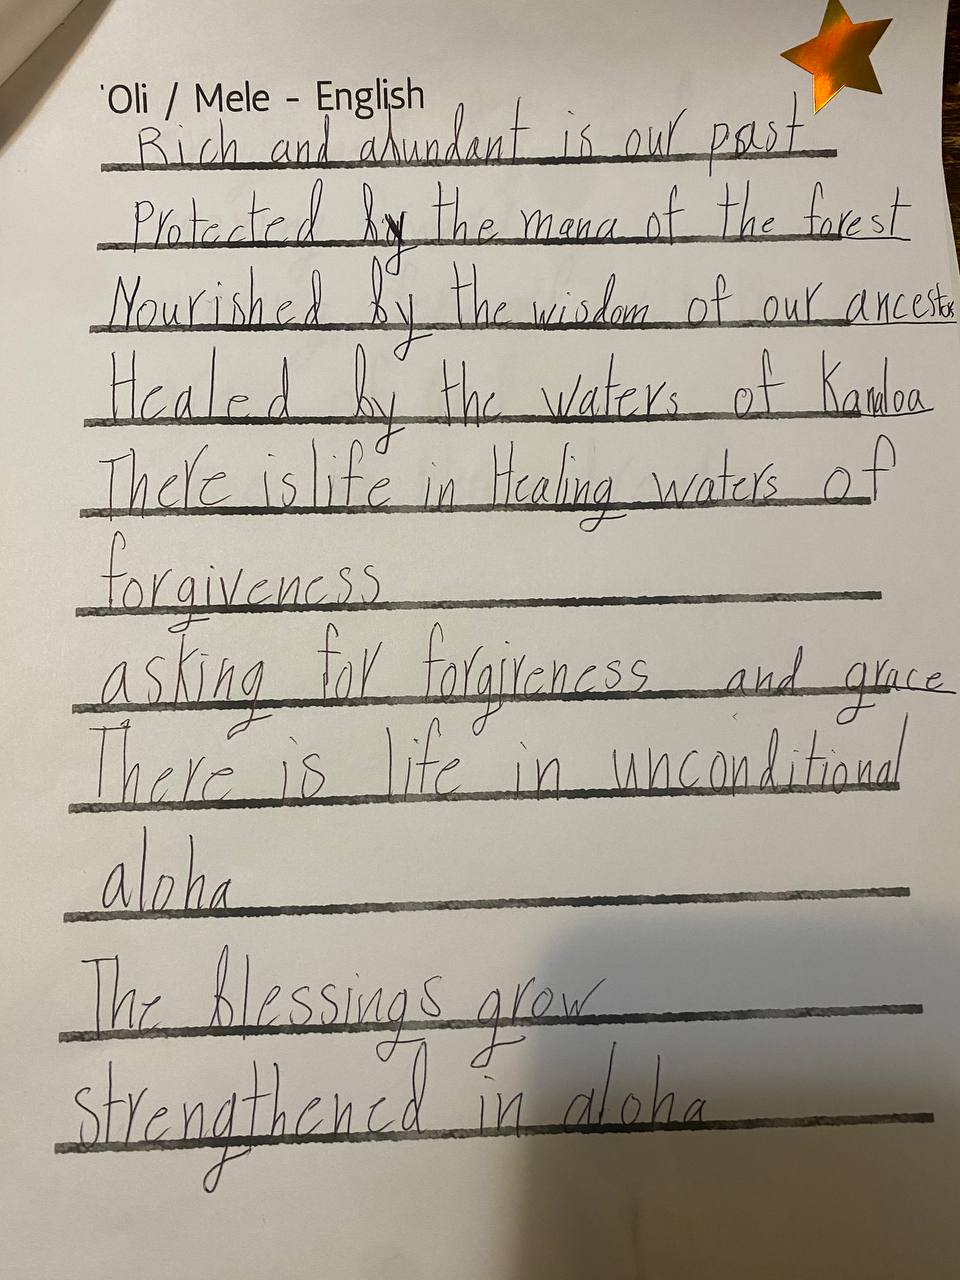 'Oli / Mele - English
Rich and abundant is our past
Protected by the mana of the forest
Nourished by the wisdom of our ancestors
Healed by the waters of Kanaloa
There is life in Healing waters of
forgiveness
asking for forgiveness and grace
There is life in unconditional
aloha
The blessings grow
strengthened in aloha